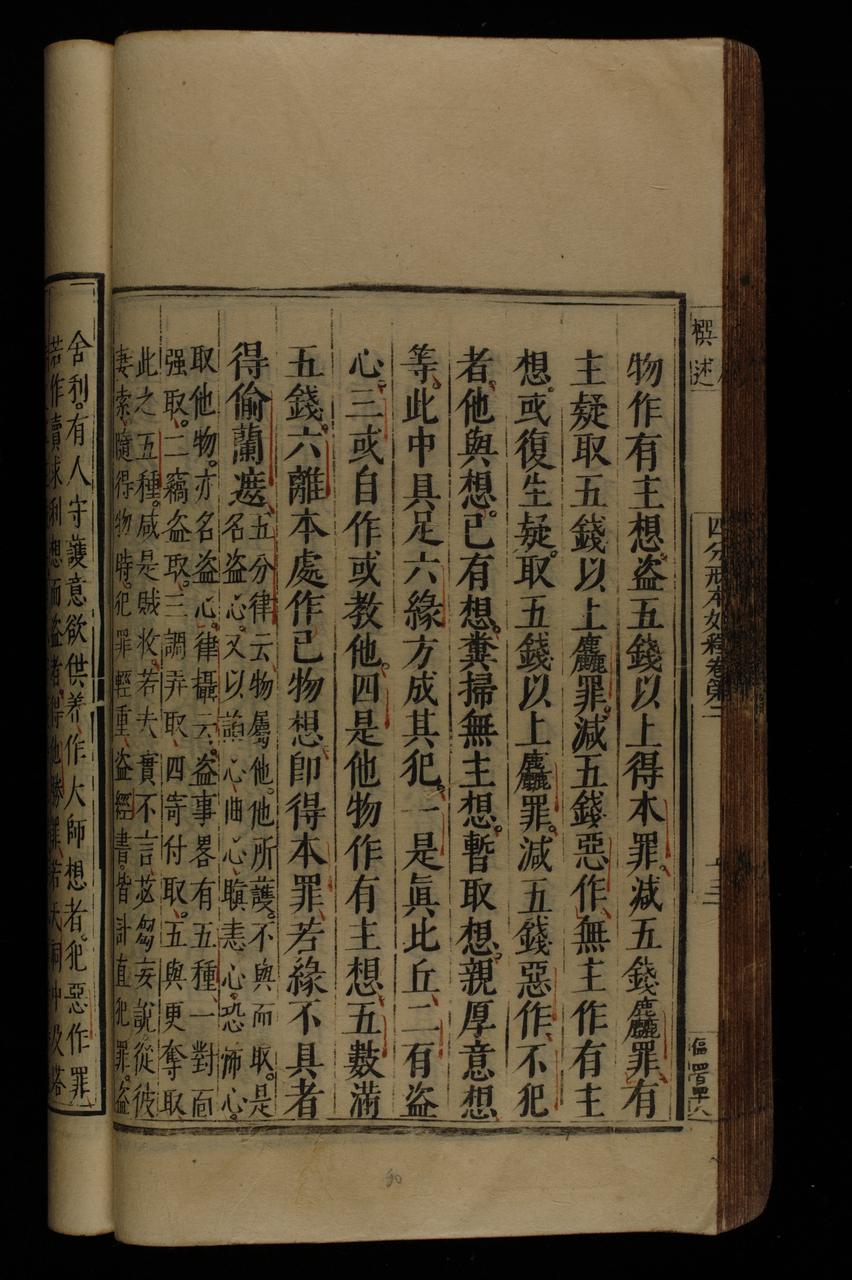 撰述
四分戒本如釋卷第二
十三
物作有主想。盗五錢以上得本罪。减五錢麤罪。有
主疑取五錢以上麤罪。减五錢惡作。無主作有主
想。或復生疑。取五錢以上麤罪。减五錢惡作。不犯
者。他與想。己有想。糞掃無主想。暫取想。親厚意想
等。此中具足六緣方成其犯。一是眞比丘、二有盗
心、三或自作或教他。四是他物作有主想、五數滿
五錢。六離本處作己物想。卽得本罪、若緣不具者
得偷蘭遮、五分律云。物屬他。他所護。不與而取。是
名盗心。又以諂心。曲心。瞋恚心。恐怖心。
取他物。亦名盗心。律攝云。盗事畧有五種、一對面
强取、二竊盗取。三調弄取、四寄付取。五與更奪取
此之五種。咸是賊收。若夫實不言。苾芻妄說。從彼
妻索。隨得物時。犯罪輕重、盗經書。皆計直犯罪。盗
舍利。有人守護意欲供養、作大師想者。犯惡作罪